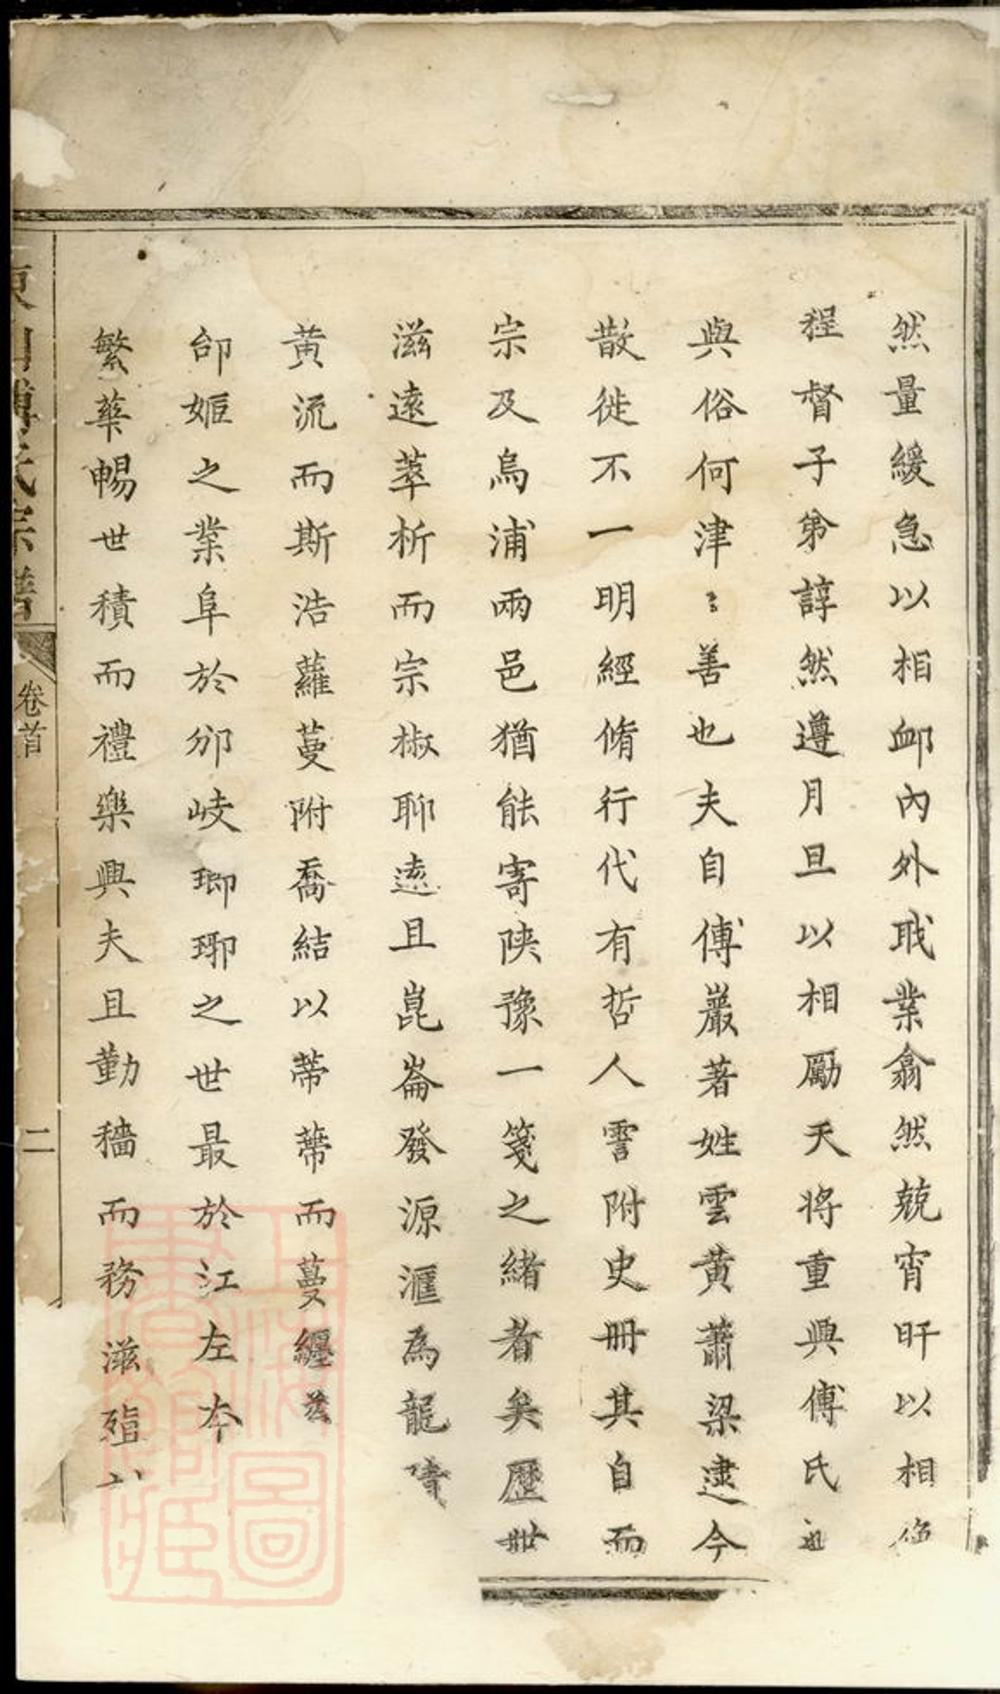 然量緩急以相卹內外戢業翕然兢宵旰以相
程督子弟諄然遵月旦以相勵天將重興傅氏
與俗何津〻善也夫自傅巖著姓雲黄蕭梁逮今
散徙不一明經脩行代有哲人霅附史冊其自而
宗及烏浦兩邑猶能寄陝豫一箋之緒者矣歷世
滋遠萃析而宗椒聊遠且崑崙發源滙為龍
黄流而斯浩蘿蔓附喬結以蒂蒂而蔓纒
邰姬之業阜於邠岐瑯琊之世最於江左本
繁華暢世積而禮樂興夫且勤穡而務滋殖
東山傅氏宗譜
卷首
二
上海圖書館藏